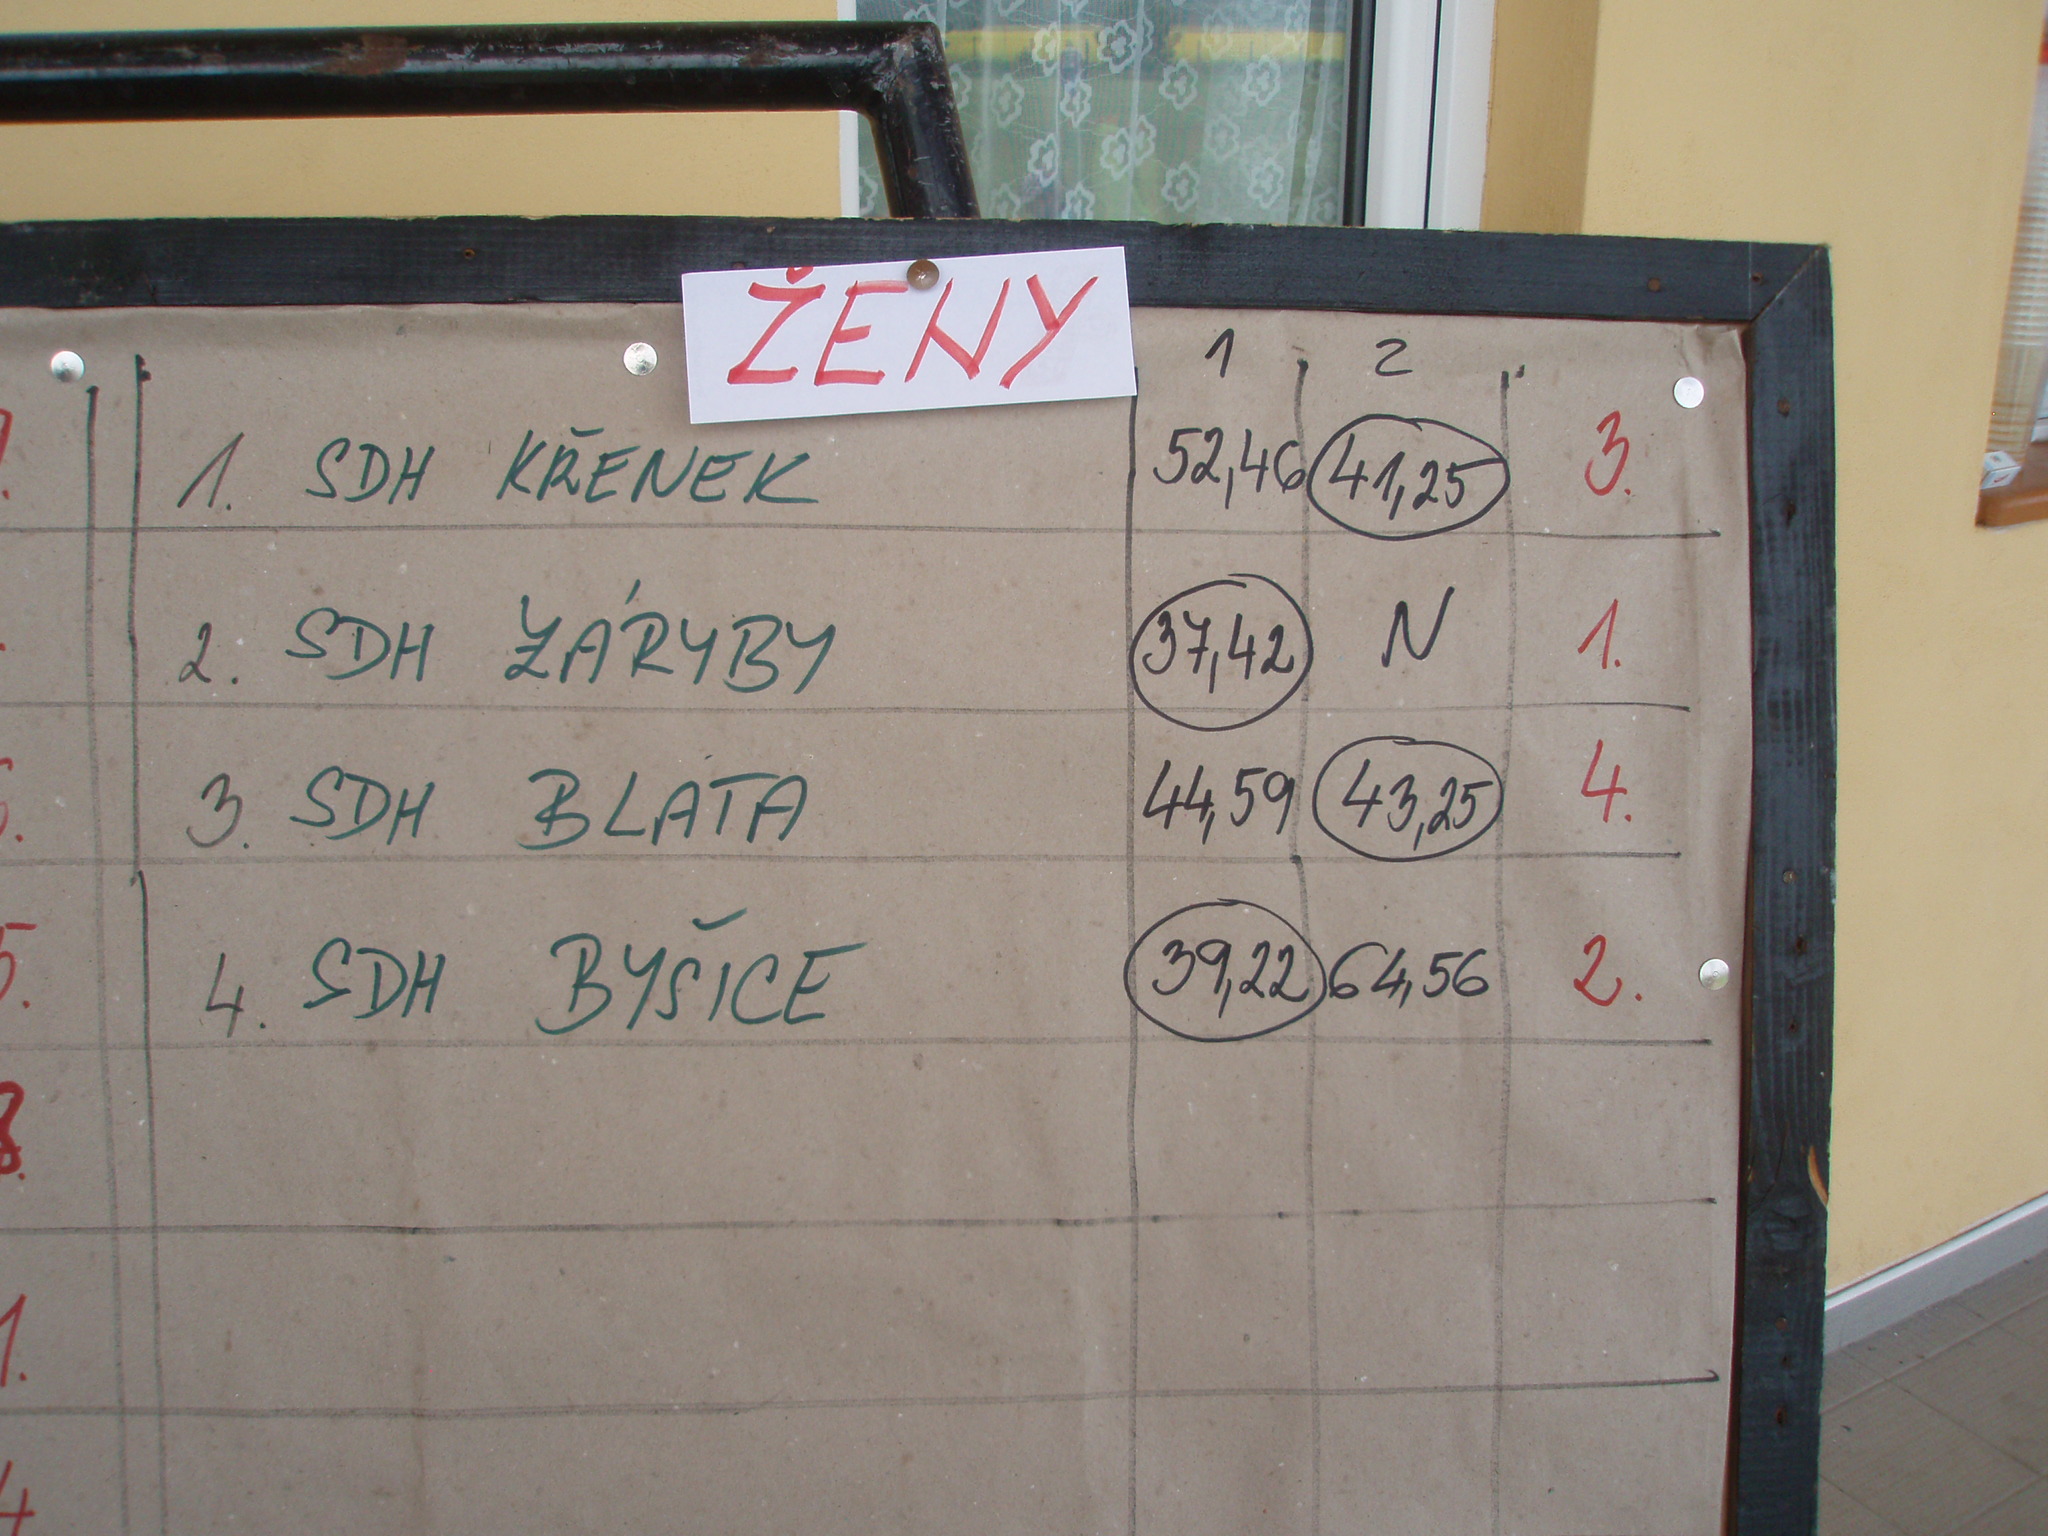 ŽENY
1 2
1. SDH KŘENEK 52,46 41,25 3.
2. SDH ZÁRYBY 37,42 N 1.
3. SDH BLATA 44,59 43,25 4.
4. SDH BYŠICE 39,22 64,56 2.
5.
8.
1.
4